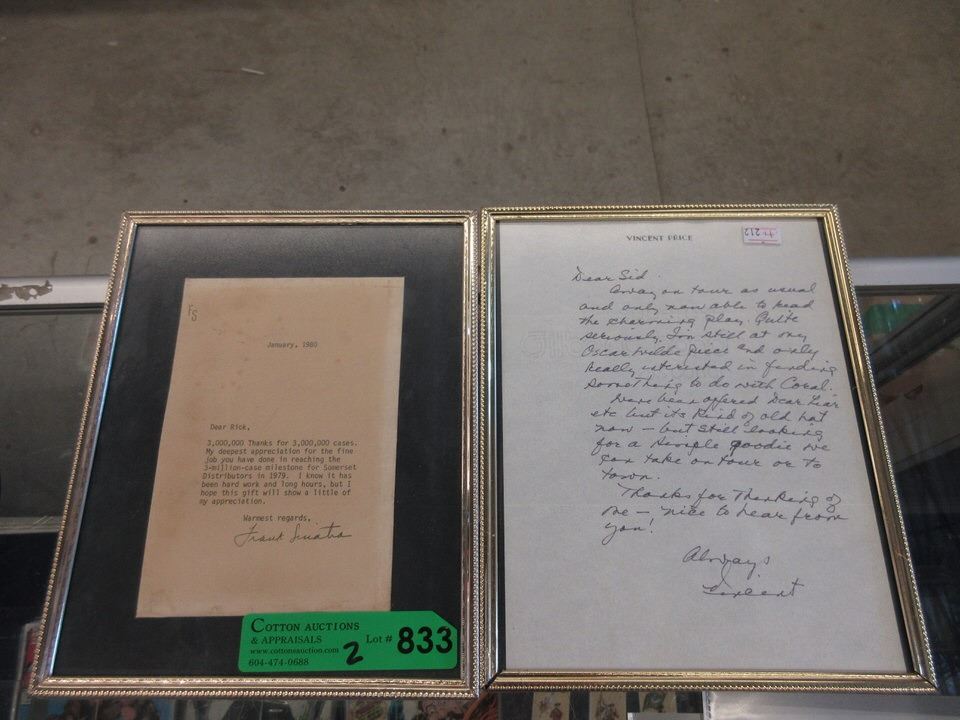 FS
January, 1980
Dear Rick,
3,000,000 Thanks for 3,000,000 cases.
My deepest appreciation for the fine
job you have done in reaching the
3-million-case milestone for Somerset
Distributors in 1979. I know it has
been hard work and long hours, but I
hope this gift will show a little of
my appreciation.
Warmest regards,
Frank Sinatra
COTTON AUCTIONS
& APPRAISALS
www.cottonsauction.com
604-474-0688
2
Lot # 833
VINCENT PRICE
Dear Sid
Away on tour as usual
and only now able to read
the charming play. Quite
seriously, I'm still at my
Oscar Wilde piece and only
really interested in finding
something to do with Coral.
have been offered Dear Liar
etc but its kind of old hat
now – but still looking
for a simple goodie we
can take on tour or to
town.
Thanks for thinking of
me – nice to hear from
you!
Always
Vincent